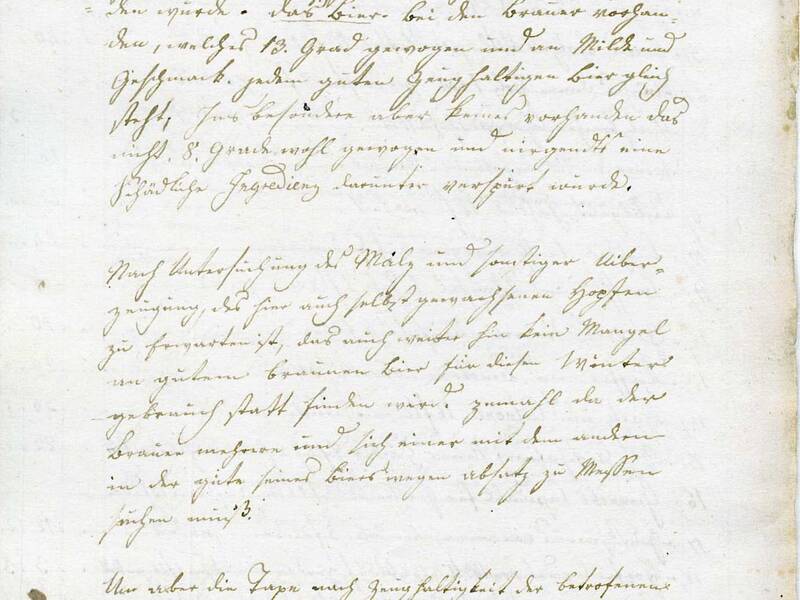 den wurde. das Bier bei den Brauer vorhan-
den, welches 13. Grad gewogen und an Milde und
Geschmack. jedem guten Zeughaltigen Bier gleich
steht, Ins besondere aber keines vorhanden das
nicht. 8. Grade wohl gewogen und nirgendts eine
schädliche Ingredienz darunter verspürt wurde.
Nach Untersuchung des Malz und sonstiger Uiber-
zeugung, des hier auch selbst gewachsenen Hopffen
zu Erwarten ist, das auch weiter hin kein Mangel
an gutem braunen Bier für diesen Winters
gebrauch statt finden wird, zemahl da der
Brauer mehrere und sich einer mit dem andern
in der güte seines Biers wegen absatz zu Messen
suchen muß.
Um aber die Tax nach Zeughaltigkeit der betrofenen